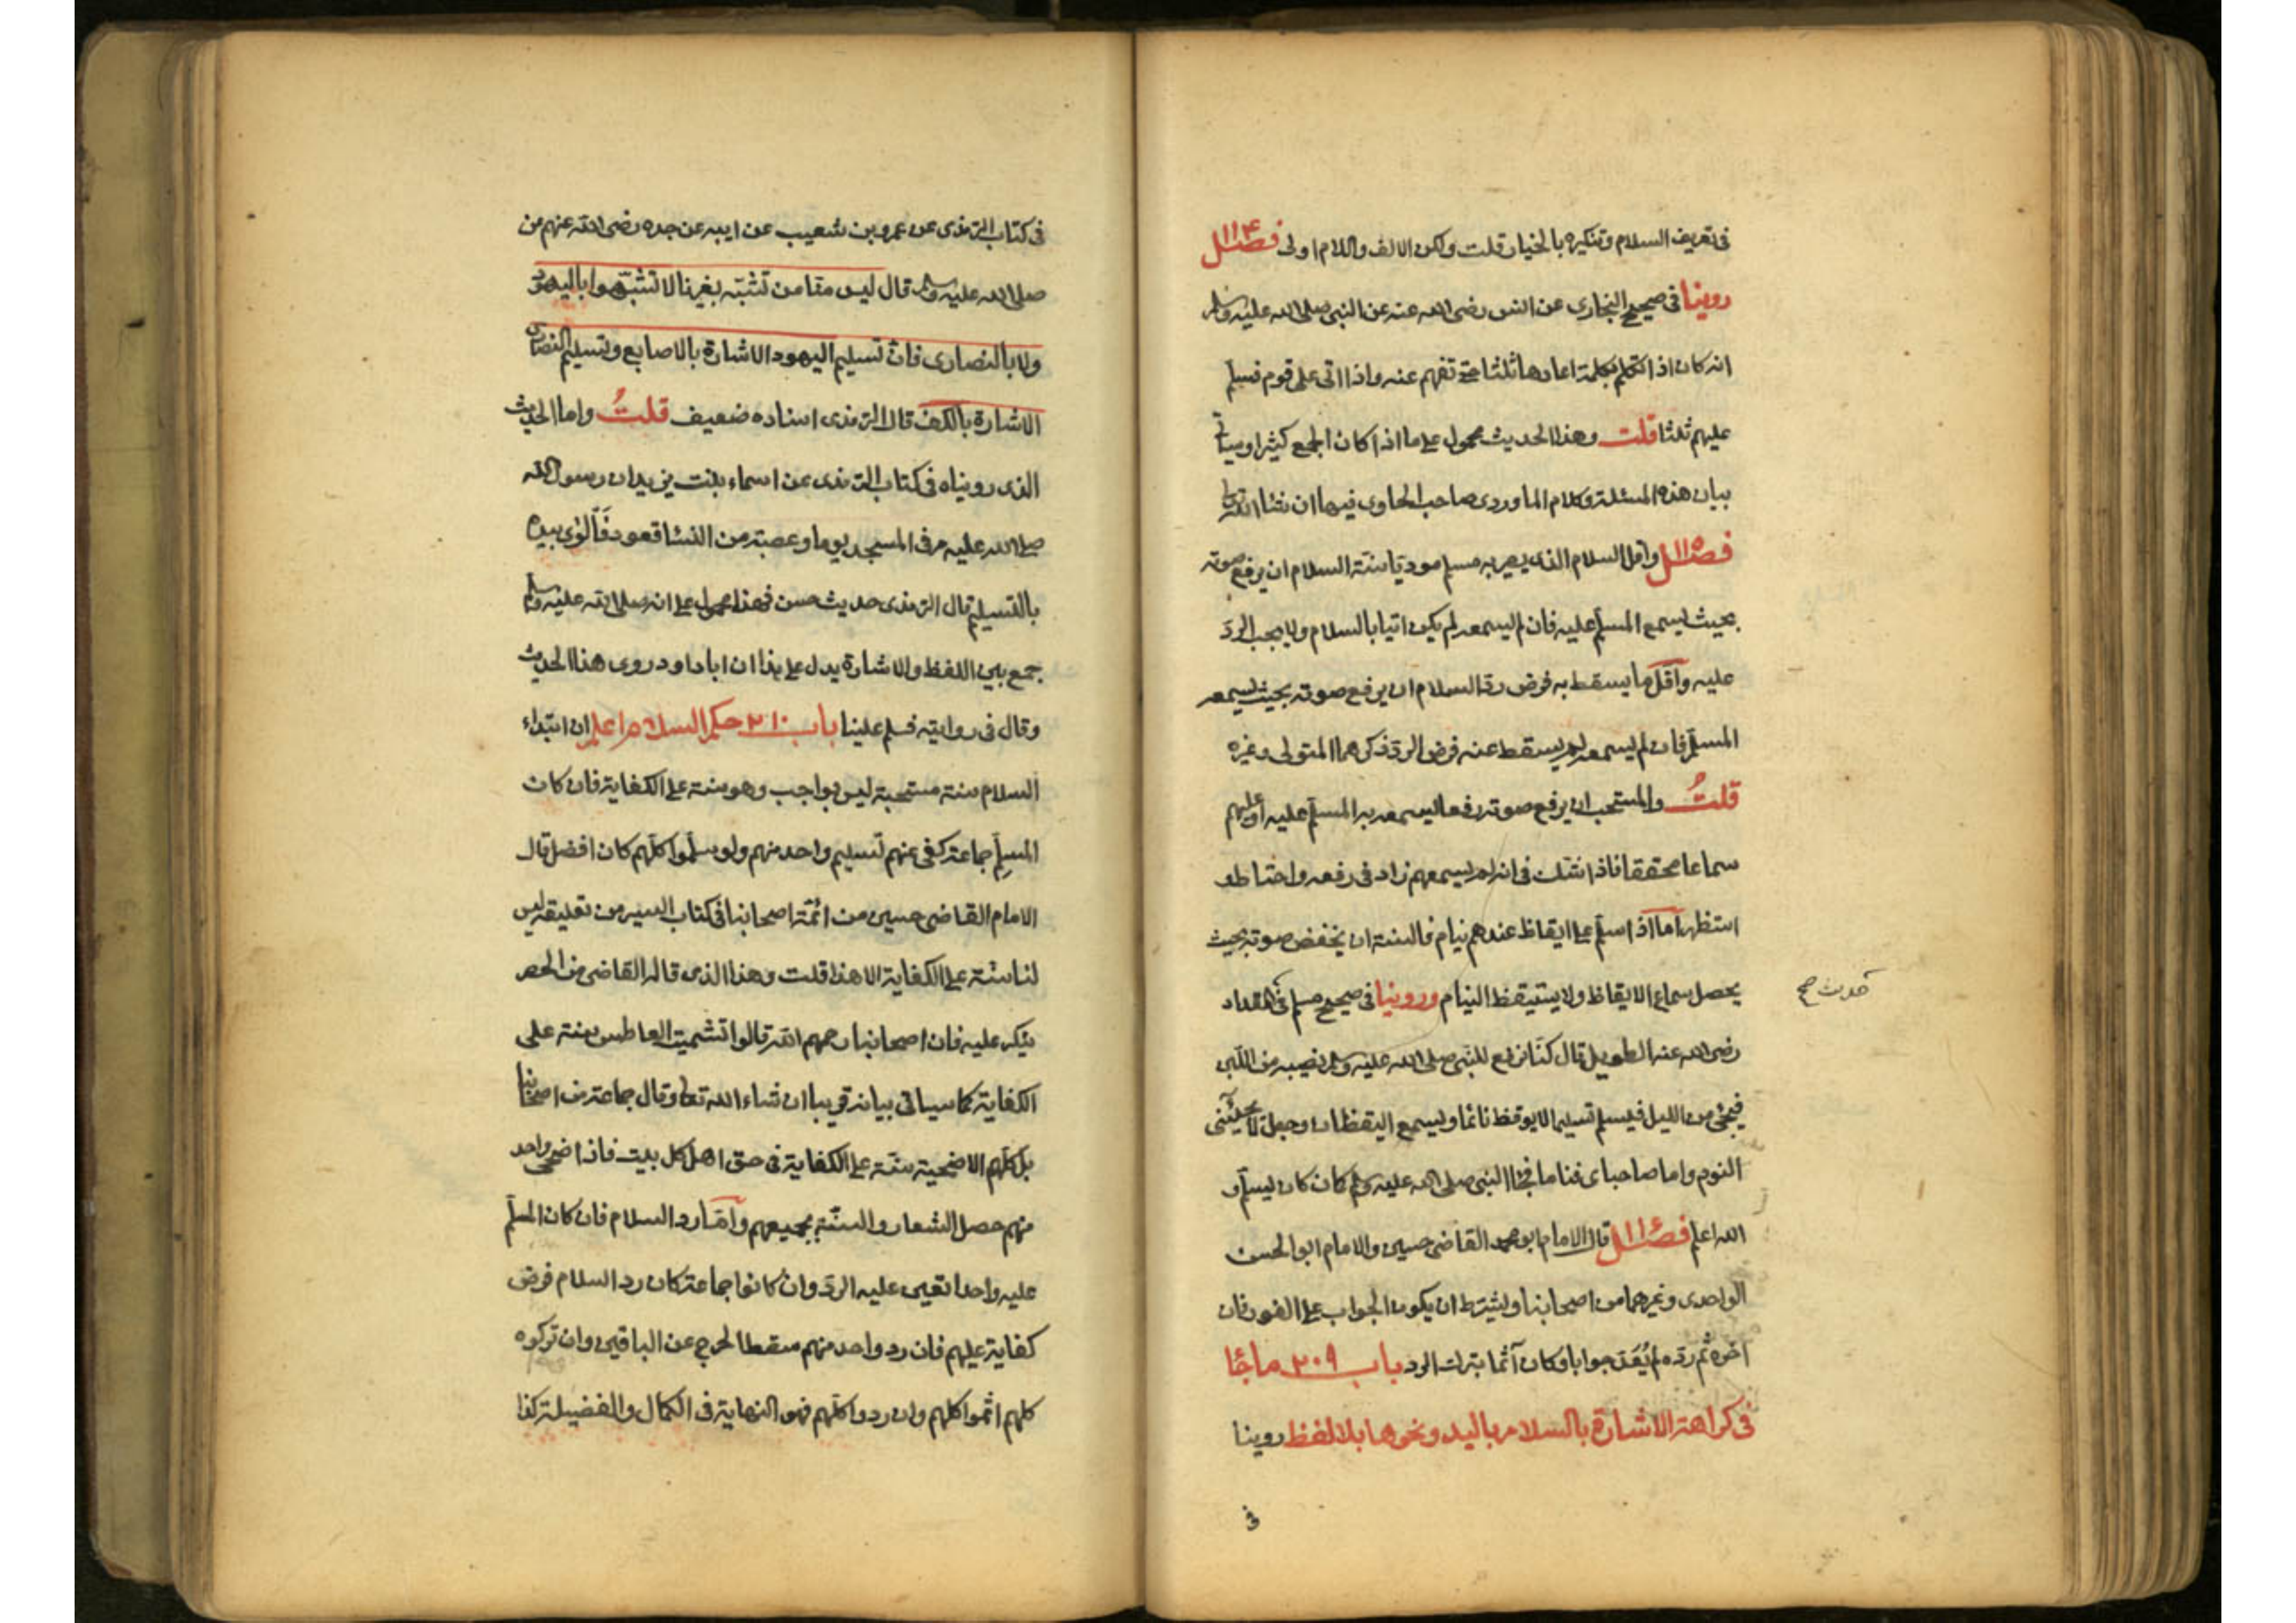 في تعريف السلام وتنكيره بالخيار قلت ولكن الالف واللام اولى فصل
روينا في صحيح البخاري عن انس رضى الله عنه عن النبي صلى الله عليه وسلم
انه كان اذا تكلم بكلمة اعادها ثلثا حتى تفهم عنه واذا اتى على قوم فسلم
عليهم ثلثا قلت وهذا الحديث محمول على ما اذا كان الجمع كثيرا وسياتي
بيان هذه المسئلة وكلام الماوردى صاحب الحاوى فيها ان شاء الله تعالى
فصل واقل السلام الذى يصير به مسلم موديا سنة السلام ان يرفع صوته
بحيث يسمع المسلم عليه فان لم يسمعه لم يكن اتيا بالسلام ولا يجب الرد
عليه واقل ما يسقط به فرض رد السلام ان يرفع صوته بحيث يسمعه
المسلم فان لم يسمعه لم يسقط عنه فرض الرد ذكرهما المتولى وغيره
قلت والمستحب ان يرفع صوته رفعا يسمعه به المسلم عليه او عليهم
سماعا محققا فاذا تشكك في انه لم يسمعهم زاد في رفعه واحتاط و
استظهر اما اذا سلم على ايقاظ عندهم نيام فالسنة ان يخفض صوته بحيث
يحصل سماع الايقاظ ولا يستيقظ النيام وروينا في صحيح مسلم في المقداد
حديث صح
رضى الله عنه الطويل قال كنا نرفع للنبى صلى الله عليه وسلم نصيبه من اللبن
فيجئ من الليل فيسلم تسليما لا يوقظ نائما ويسمع اليقظان وجعل لا يجيئنى
النوم واما صاحباى فناما فجاء النبى صلى الله عليه وسلم كان كان يسلم و
الله اعلم فصل قال الامام ابو محمد القاضى حسين والامام ابو الحسن
الواحدى وغيرهما من اصحابنا ويشترط ان يكون الجواب على الفور فان
اخره ثم رده لم يُعَدّ جوابا وكان آثما بترك الرد باب ٢٠٩ ما جاء
في كراهة الاشارة بالسلام باليد ونحوها بلا لفظ روينا
في
في كتاب الترمذى عن عمرو بن شعيب عن ابيه عن جده رضى الله عنهم من
صلى الله عليه وسلم قال ليس منا من تشبّه بغيرنا لا تشبّهوا باليهود
ولا بالنصارى فانّ تسليم اليهود الاشارة بالاصابع وتسليم النصارى
الاشارة بالكف قال الترمذى اسناده ضعيف قلتُ واما الحديث
الذى رويناه في كتاب الترمذى عن اسماء بنت يزيد ان رسول الله
صلى الله عليه مر في المسجد يوما وعصبة من النسا قعود فَاَلْوٰى بيده
بالتسليم قال الترمذى حديث حسن فهذا محمول على انه صلى الله عليه وسلم
جمع بين اللفظ والاشارة يدل على هذا ان ابا داود روى هذا الحديث
وقال في روايته فسلم علينا باب ٢١٠ حكم السلام اعلم ان ابتداء
السلام سنة مستحبة ليس بواجب وهو سنة على الكفاية فان كان
المسلِّم جماعة كفى عنهم تسليم واحد منهم ولو سلّموا كلّهم كان افضل قال
الامام القاضى حسين من ائمّة اصحابنا في كتاب السير من تعليقه ليس
لنا سنّة على الكفاية الا هذا قلت وهذا الذى قاله القاضى من الحصر
ينكر عليه فان اصحابنا رحمهم الله قالوا تشميت العاطس سنة على
الكفاية كما سياتى بيانه قريبا ان شاء الله تعا وقال جماعة من اصحابنا
بل كلّهم الاضحية سنّة على الكفاية في حق اهل كل بيت فاذا ضحى واحد
منهم حصل الشعار والسنّة بجميعهم وامّا رد السلام فان كان المسلّم
عليه واحدا تعين عليه الردّ وان كانوا جماعة كان رد السلام فرض
كفاية عليهم فان رد واحد منهم سقط الحرج عن الباقين وان تركوه
كلهم اثموا كلهم وان ردوا كلّهم فهو النهاية في الكمال والفضيلة كذا